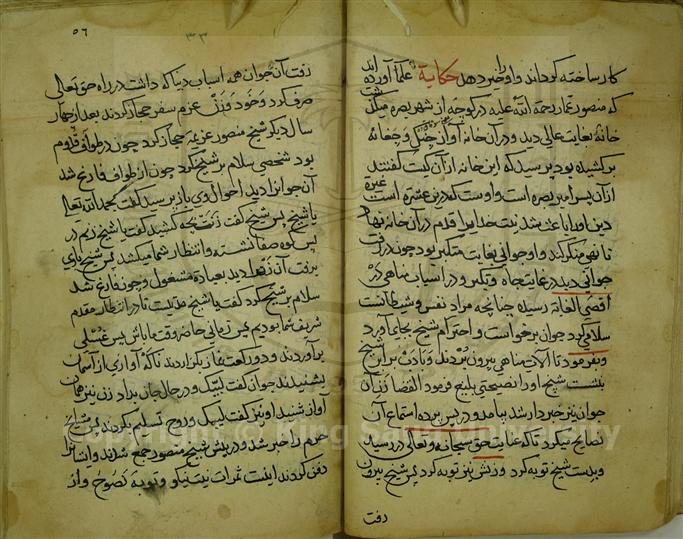 کار ساخته کرداند و او را خیر دهد حکایة علما آورده اند
که منصور عمار رحمة الله علیه در کوچه از شهر بصره میگذشت
خانهٔ بغایت عالی دید و در آن خانه آواز چنگ و چغانه
بر کشیده بود پرسید که این خانه از آن کیست گفتند
از آن پسر امیر بصره است و اوست که در عشرة است غیرة
دین او را باعث شد نیت خدایرا قدم در آن خانه نهاد
تا نهی منکر کند و او جوانی بغایت متکبر بود چون در رفت
جوانی دید در غایت جاه و تکبر و در اسباب مناهی در
اقصی الغایه رسیده چنانچه مراد نفس و شیطانست
سلامی کرد جوان برخواست و احترام شیخ بجای آورد
و بفرمود تا آلات مناهی بیرون بردند و بادب برابر شیخ
بنشست شیخ او را نصیحتی بلیغ فرمود القضا زن آن
جوان نیز خبردار شد بیامد و در پس پرده استماع آن
نصایح میکرد تا که عنایت حق سبحانه و تعالی در رسید
و بدست شیخ توبه کرد و زنش نیز توبه کرد پس شیخ بیرون
رفت
٥٦
رفت آن جوان همه اسباب دنیا که داشت در راه حق تعالی
صرف کرد و خود و زن عزم سفر حجاز کردند بعد از چهار
سال دیگر شیخ منصور عزیمة حجاز کرد چون در طواف قدوم
بود شخصی سلام بر شیخ کرد چون از طواف فارغ شد
آن جوانرا دید احوال وی باز پرسید گفت بحمد الله تعالی
یا شیخ پس شیخ گفت زنت چه کشید گفت یا شیخ زنم در
پس کوه صفا نشسته و انتظار شما میکشد پس شیخ بای
برفت آن زنرا دید بعبادة مشغول و چون فارغ شد
سلام بر شیخ کرد گفت یا شیخ مدتیست تا در انتظار مقدم
شریف شما بودیم پس زمانی حاضر وقت ما باش پس غسلی
برآوردند و دو رکعت نماز بگزاردند ناکه آوازی از آسمان
بشنیدند جوان گفت لبیک و در حال جان بداد زن نیز همان
آواز شنید او نیز گفت لبیک و روح تسلیم کردند پس مشایخ
حرم را خبر شد و در پیش شیخ منصور جمع شدند و ایشانرا
دفن کردند اینست ثمرات نیت نیکو و توبة نصوح و از
Copyright © King Saud University